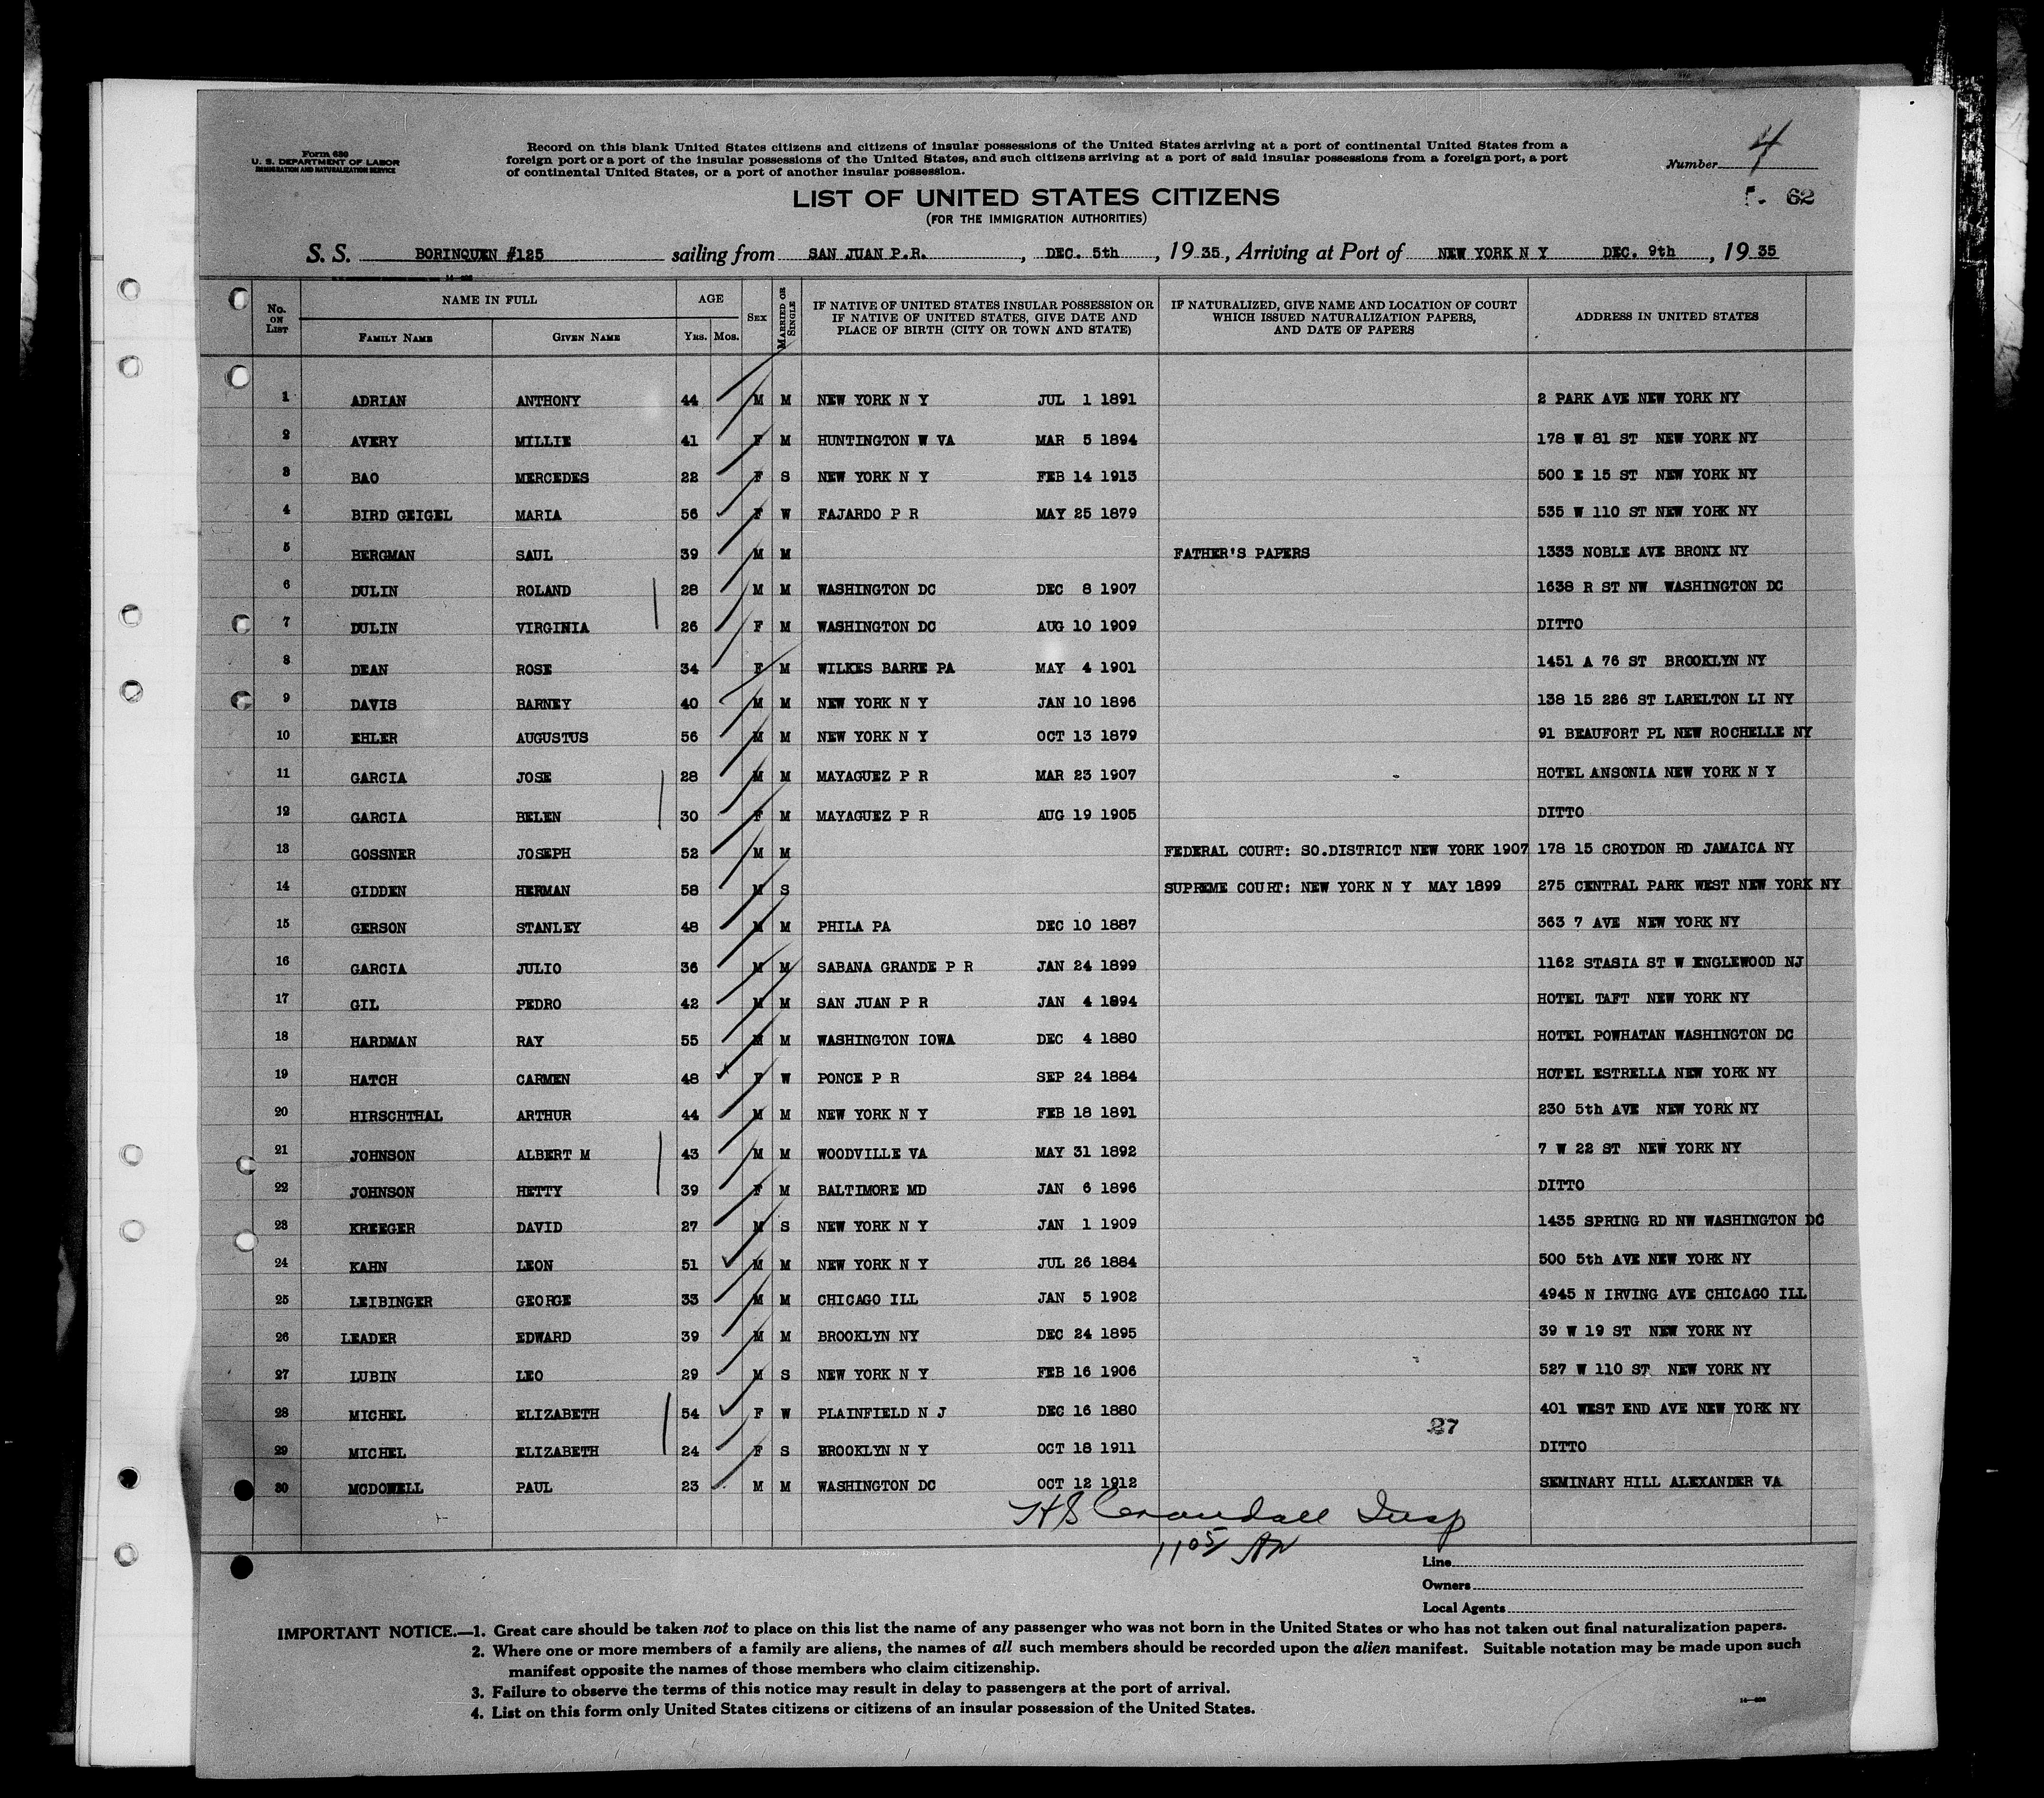 Form 630
U. S. DEPARTMENT OF LABOR
IMMIGRATION AND NATURALIZATION SERVICE
Record on this blank United States citizens and citizens of insular possessions of the United States arriving at a port of continental United States from a
foreign port or a port of the insular possessions of the United States, and such citizens arriving at a port of said insular possessions from a foreign port, a port
of continental United States, or a port of another insular possession.
Number 4
62
LIST OF UNITED STATES CITIZENS
(FOR THE IMMIGRATION AUTHORITIES)
S. S. BORINQUEN #125 sailing from SAN JUAN P.R. , DEC. 5th , 19 35, Arriving at Port of NEW YORK N Y DEC. 9th , 19 35
No. ON LIST NAME IN FULL AGE SEX MARRIED OR SINGLE IF NATIVE OF UNITED STATES INSULAR POSSESSION OR IF NATIVE OF UNITED STATES, GIVE DATE AND PLACE OF BIRTH (CITY OR TOWN AND STATE) IF NATURALIZED, GIVE NAME AND LOCATION OF COURT WHICH ISSUED NATURALIZATION PAPERS, AND DATE OF PAPERS ADDRESS IN UNITED STATES
FAMILY NAME GIVEN NAME YRS. MOS.
1 ADRIAN ANTHONY 44 M M NEW YORK N Y JUL 1 1891 2 PARK AVE NEW YORK NY
2 AVERY MILLIE 41 F M HUNTINGTON W VA MAR 5 1894 178 W 81 ST NEW YORK NY
3 BAO MERCEDES 22 F S NEW YORK N Y FEB 14 1913 500 E 15 ST NEW YORK NY
4 BIRD GEIGEL MARIA 56 F W FAJARDO P R MAY 25 1879 535 W 110 ST NEW YORK NY
5 BERGMAN SAUL 39 M M FATHER'S PAPERS 1333 NOBLE AVE BRONX NY
6 DULIN ROLAND 28 M M WASHINGTON DC DEC 8 1907 1638 R ST NW WASHINGTON DC
7 DULIN VIRGINIA 26 F M WASHINGTON DC AUG 10 1909 DITTO
8 DEAN ROSE 34 F M WILKES BARRE PA MAY 4 1901 1451 A 76 ST BROOKLYN NY
9 DAVIS BARNEY 40 M M NEW YORK N Y JAN 10 1896 138 15 226 ST LARELTON LI NY
10 EHLER AUGUSTUS 56 M M NEW YORK N Y OCT 13 1879 91 BEAUFORT PL NEW ROCHELLE NY
11 GARCIA JOSE 28 M M MAYAGUEZ P R MAR 23 1907 HOTEL ANSONIA NEW YORK N Y
12 GARCIA BELEN 30 F M MAYAGUEZ P R AUG 19 1905 DITTO
13 GOSSNER JOSEPH 52 M M FEDERAL COURT: SO.DISTRICT NEW YORK 1907 178 15 CROYDON RD JAMAICA NY
14 GIDDEN HERMAN 58 M S SUPREME COURT: NEW YORK N Y MAY 1899 275 CENTRAL PARK WEST NEW YORK NY
15 GERSON STANLEY 48 M M PHILA PA DEC 10 1887 363 7 AVE NEW YORK NY
16 GARCIA JULIO 36 M M SABANA GRANDE P R JAN 24 1899 1162 STASIA ST W ENGLEWOOD NJ
17 GIL PEDRO 42 M M SAN JUAN P R JAN 4 1894 HOTEL TAFT NEW YORK NY
18 HARDMAN RAY 55 M M WASHINGTON IOWA DEC 4 1880 HOTEL POWHATAN WASHINGTON DC
19 HATCH CARMEN 48 F W PONCE P R SEP 24 1884 HOTEL ESTRELLA NEW YORK NY
20 HIRSCHTHAL ARTHUR 44 M M NEW YORK N Y FEB 18 1891 230 5th AVE NEW YORK NY
21 JOHNSON ALBERT M 43 M M WOODVILLE VA MAY 31 1892 7 W 22 ST NEW YORK NY
22 JOHNSON HETTY 39 F M BALTIMORE MD JAN 6 1896 DITTO
23 KREEGER DAVID 27 M S NEW YORK N Y JAN 1 1909 1435 SPRING RD NW WASHINGTON DC
24 KAHN LEON 51 M M NEW YORK N Y JUL 26 1884 500 5th AVE NEW YORK NY
25 LEIBINGER GEORGE 33 M M CHICAGO ILL JAN 5 1902 4945 N IRVING AVE CHICAGO ILL
26 LEADER EDWARD 39 M M BROOKLYN NY DEC 24 1895 39 W 19 ST NEW YORK NY
27 LUBIN LEO 29 M S NEW YORK N Y FEB 16 1906 527 W 110 ST NEW YORK NY
28 MICHEL ELIZABETH 54 F W PLAINFIELD N J DEC 16 1880 401 WEST END AVE NEW YORK NY
27
29 MICHEL ELIZABETH 24 F S BROOKLYN N Y OCT 18 1911 DITTO
30 MCDOWELL PAUL 23 M M WASHINGTON DC OCT 12 1912 SEMINARY HILL ALEXANDER VA
HB Crandall Insp
1105 AM
Line
Owners
Local Agents
IMPORTANT NOTICE.—1. Great care should be taken not to place on this list the name of any passenger who was not born in the United States or who has not taken out final naturalization papers.
2. Where one or more members of a family are aliens, the names of all such members should be recorded upon the alien manifest. Suitable notation may be made upon such
manifest opposite the names of those members who claim citizenship.
3. Failure to observe the terms of this notice may result in delay to passengers at the port of arrival.
4. List on this form only United States citizens or citizens of an insular possession of the United States.